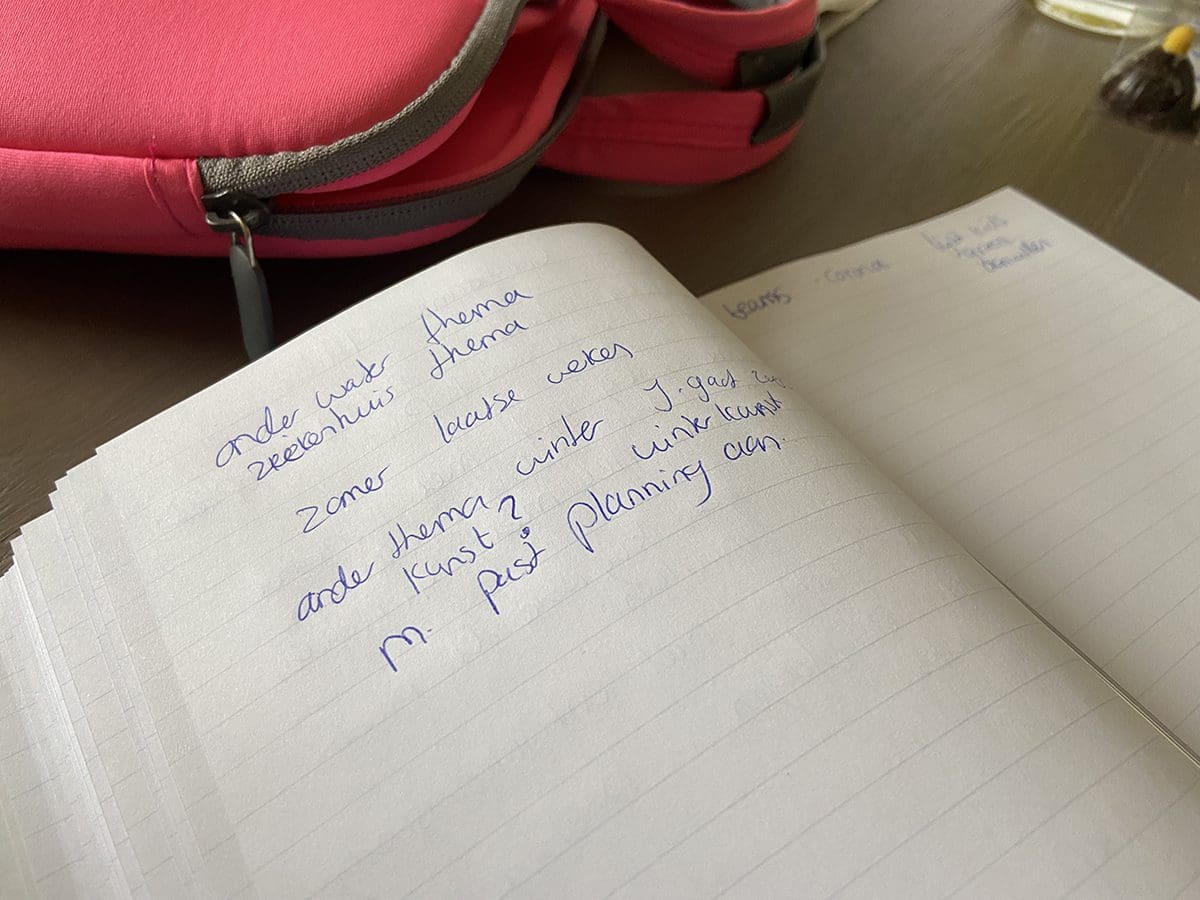 onder water thema
ziekenhuis thema
zomer laatse weken
ander thema winter J. gaat
kunst? winterkunst
M. past planning aan.
beamas . corona